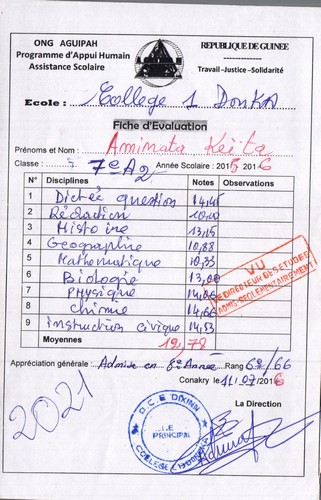 ONG AGUIPAH
Programme d'Appui Humain
Assistance Scolaire
REPUBLIQUE DE GUINEE
Travail -Justice -Solidarité
Ecole : College 1 Donka
Fiche d'Evaluation
Prénoms et Nom : Aminata Keïta
Classe : 7e A2 Année Scolaire : 2015 2016
N° Disciplines Notes Observations
1 Dictée question 14,45
2 Rédaction 10,40
3 Histoire 13,15
4 Geographie 10,88
5 Mathematique 10,33
6 Biologie 13,00
7 Physique 14,06
8 chimie 14,66
9 instruction civique 14,53
Moyennes 12,78
VU
LE DIRECTEUR DES ETUDES
ADMIS REGLEMENTAIREMENT
Appréciation générale : Admise en 8e Année Rang 6e/66
Conakry le 11/07/2016
2021
La Direction
D.C.E DIXINN
LE
PRINCIPAL
COLLEGE 1 DONKA